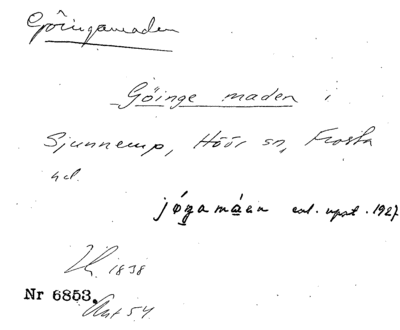 Göingamaden
Göinge maden i
Sjunnerup, Höör sn, Frosta
hd.
enl. uppt. 1927
1838
Nr 6853.